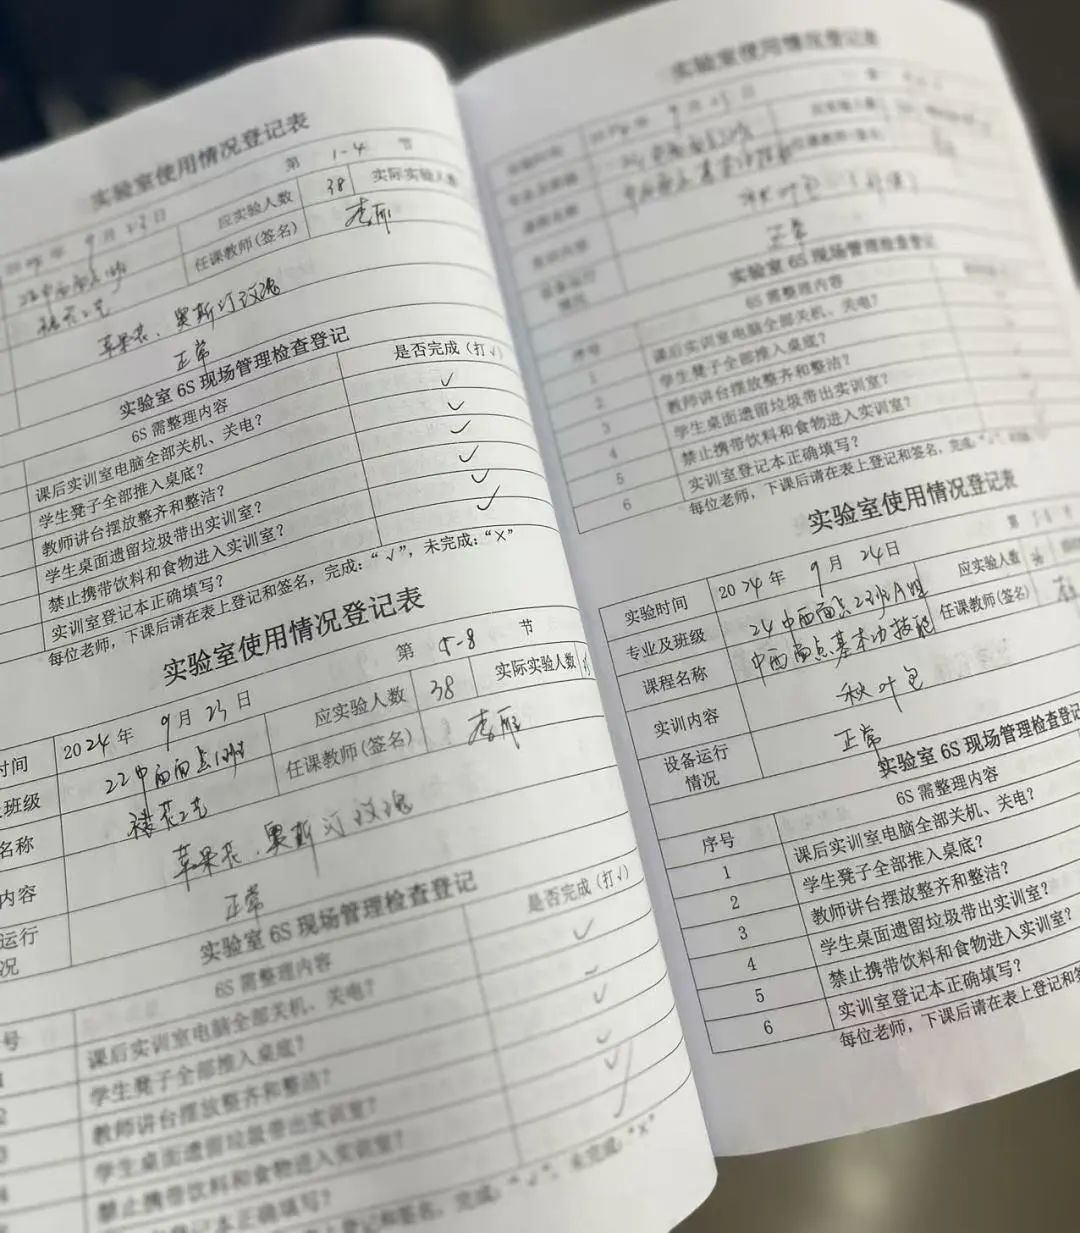 实验室使用情况登记表
第 1-4 节
年 9月23日 应实验人数 38 实际实验人数
22中西面点1班 任课教师(签名) 李雁
裱花工艺
苹果花、奥斯汀玫瑰
正常
实验室 6S 现场管理检查登记
6S 需整理内容 是否完成（打√）
课后实训室电脑全部关机、关电？ ✓
学生凳子全部推入桌底？ ✓
教师讲台摆放整齐和整洁？ ✓
学生桌面遗留垃圾带出实训室？ ✓
禁止携带饮料和食物进入实训室？ ✓
实训室登记本正确填写？
每位老师，下课后请在表上登记和签名，完成：“√”，未完成：“×”
实验室使用情况登记表
第 5-8 节
时间 2024年 9月23日 应实验人数 38 实际实验人数
班级 22中西面点1班 任课教师(签名) 李雁
名称 裱花工艺
内容 苹果花、奥斯汀玫瑰
运行
况 正常
实验室 6S 现场管理检查登记
号 6S 需整理内容 是否完成（打√）
课后实训室电脑全部关机、关电？ ✓
学生凳子全部推入桌底？
教师讲台摆放整齐和整洁？ ✓
学生桌面遗留垃圾带出实训室？ ✓
禁止携带饮料和食物进入实训室？ ✓
登记本正确填写？
表上登记和签名，完成：“√”，未完成：“×”
实验室使用情况登记表
实验时间 年 9月 日 应实验人数
专业及班级 任课教师(签名)
课程名称
实训内容 秋叶包
设备运行
情况 正常
实验室 6S 现场管理检查登记
序号 6S 需整理内容
1 课后实训室电脑全部关机、关电？
2 学生凳子全部推入桌底？
3 教师讲台摆放整齐和整洁？
4 学生桌面遗留垃圾带出实训室？
5 禁止携带饮料和食物进入实训室？
6 实训室登记本正确填写？
每位老师，下课后请在表上登记和签名，完成：“√”
实验室使用情况登记表
第
实验时间 2024年 9月24日 应实验人数
专业及班级 24中西面点2班A组 任课教师(签名) 李
课程名称 中西面点基本功技能
实训内容 秋叶包
设备运行
情况 正常
实验室 6S 现场管理检查登记
序号 6S 需整理内容
1 课后实训室电脑全部关机、关电？
2 学生凳子全部推入桌底？
3 教师讲台摆放整齐和整洁？
4 学生桌面遗留垃圾带出实训室？
5 禁止携带饮料和食物进入实训室？
6 实训室登记本正确填写？
每位老师，下课后请在表上登记和签